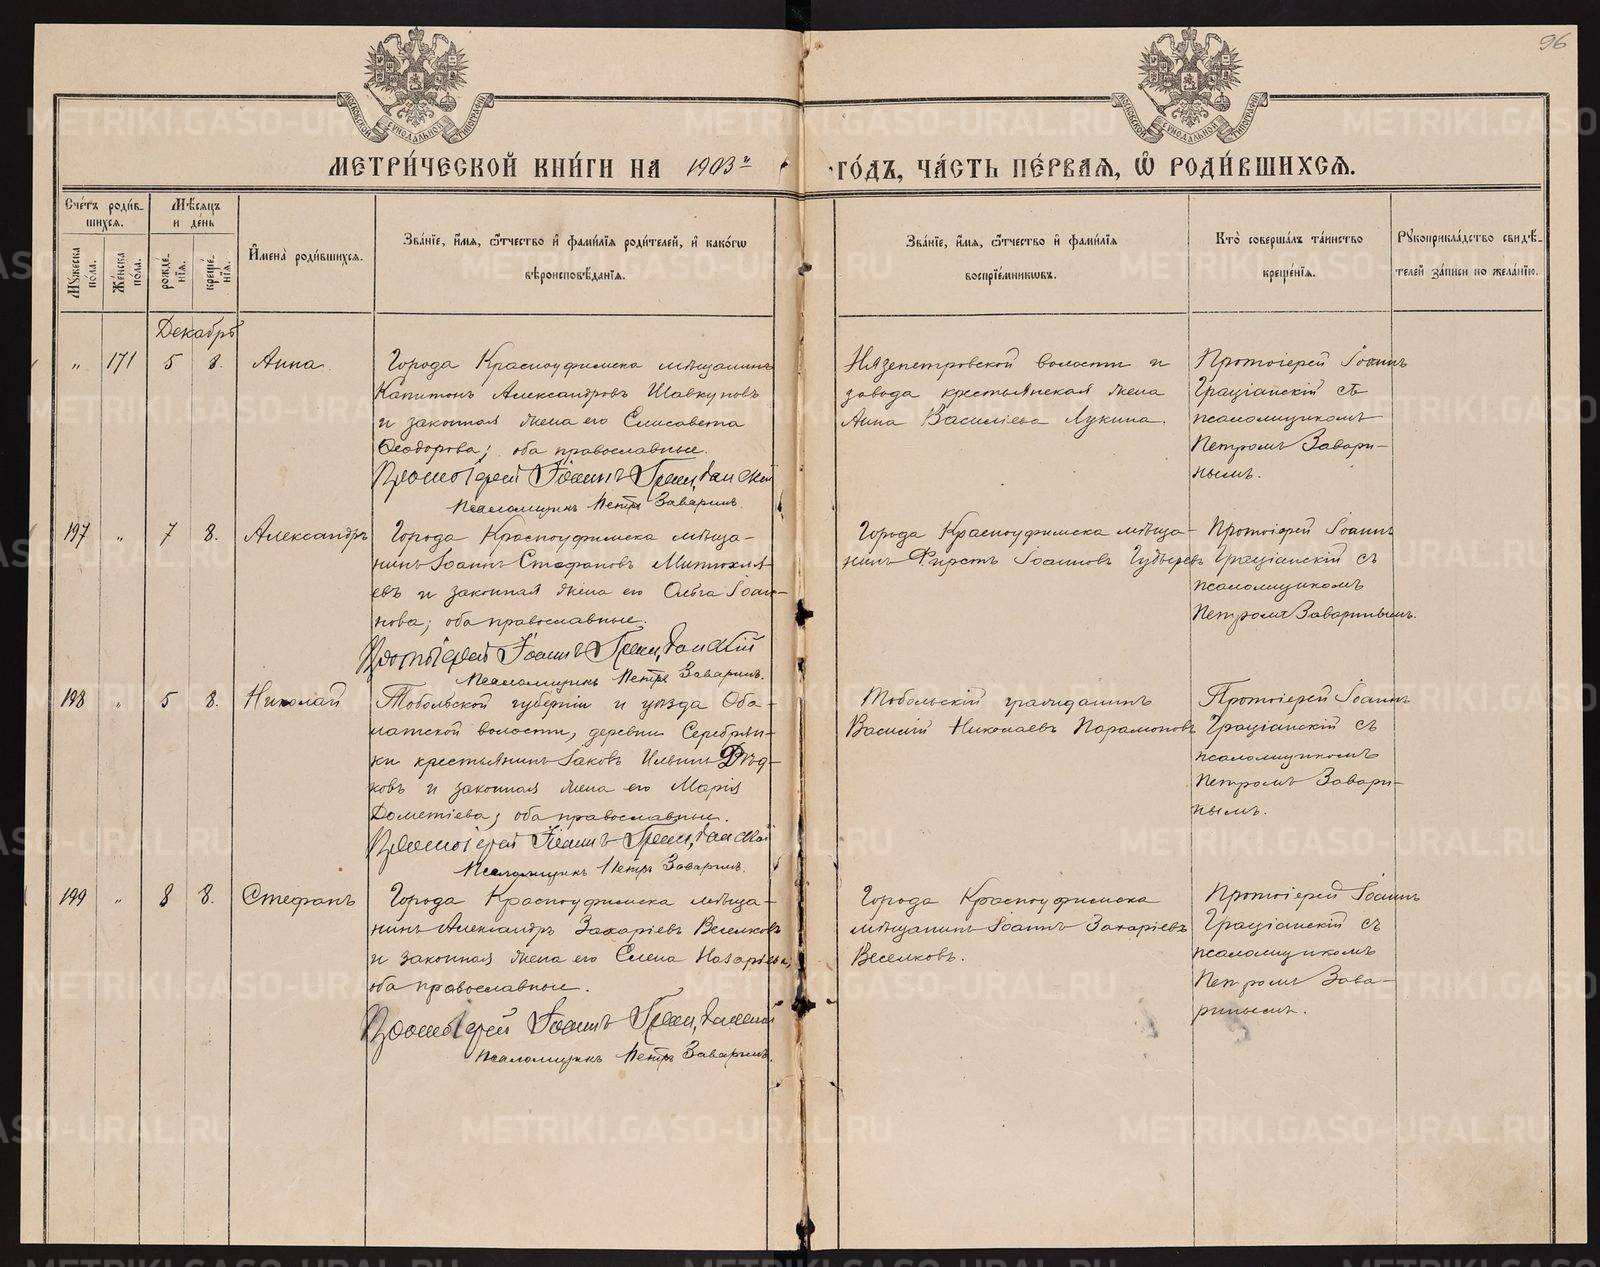 96
МОСКОВСКОЙ СѴНОДАЛЬНОЙ ТИПОГРАФІИ
МОСКОВСКОЙ СѴНОДАЛЬНОЙ ТИПОГРАФІИ
МЕТРИ́ЧЕСКОЙ КНИ́ГИ НА 1903й ГО́ДЪ, ЧА́СТЬ ПЕ́РВАЯ, Ѡ҆ РОДИ́ВШИХСЯ.
Сче́тъ роди́в-
шихся.
Мѣ́сяцъ
и де́нь
Мꙋ́жеска по́ла.
Же́нска по́ла.
рожде́-нїя.
креще́-нїя.
И҆мена̀ роди́вшихся.
Зва́нїе, и҆́мя, ѻ҆́тчество и҆ фами́лїя роди́телей, и҆ како́гѡ
вѣроисповѣ́данїя.
Зва́нїе, и҆́мя, ѻ҆́тчество и҆ фами́лїя
воспрїе́мниковъ.
Кто̀ соверша́лъ та́инство
креще́нїя.
Рꙋкоприкла́дство свидѣ́-
телей за́писи по жела́нїю.
Декабрь
„ 171 5 8. Анна.
Города Красноуфимска мѣщанинъ
Капитонъ Александровъ Шавкуновъ
и законная жена его Елисавета
Ѳеодорова; оба православные.
Протоіерей Іоаннъ Граціанскій
Псаломщикъ Петръ Заваринъ.
Нязепетровской волости и
завода крестьянская жена
Анна Василіева Лукина.
Протоіерей Іоаннъ
Граціанскій съ
псаломщикомъ
Петромъ Завари-
нымъ.
197 „ 7 8. Александръ
Города Красноуфимска мѣща-
нинъ Іоаннъ Стефановъ Митюхля-
евъ и законная жена его Ольга Іоан-
нова; оба православные.
Протоіерей Іоаннъ Граціанскій
Псаломщикъ Петръ Заваринъ.
Города Красноуфимска мѣща-
нинъ Фирстъ Іоанновъ Губыревъ
Протоіерей Іоаннъ
Граціанскій съ
псаломщикомъ
Петромъ Заваринымъ.
198 „ 5 8. Николай
Тобольской губерніи и уѣзда Оба-
латской волости, деревни Серебрян-
ки крестьянинъ Іаковъ Ильинъ Дѣд-
ковъ и законная жена его Марія
Дометіева; оба православные.
Протоіерей Іоаннъ Граціанскій
Псаломщикъ Петръ Заваринъ.
Тобольскій гражданинъ
Василій Николаевъ Парамоновъ
Протоіерей Іоаннъ
Граціанскій съ
псаломщикомъ
Петромъ Завари-
нымъ.
199 „ 8 8. Стефанъ
Города Красноуфимска мѣща-
нинъ Александръ Захаріевъ Веселковъ
и законная жена его Елена Назаріева,
оба православные.
Протоіерей Іоаннъ Граціанскій
Псаломщикъ Петръ Заваринъ.
Города Красноуфимска
мѣщанинъ Іоаннъ Захаріевъ
Веселковъ.
Протоіерей Іоаннъ
Граціанскій съ
псаломщикомъ
Петромъ Зава-
ринымъ.